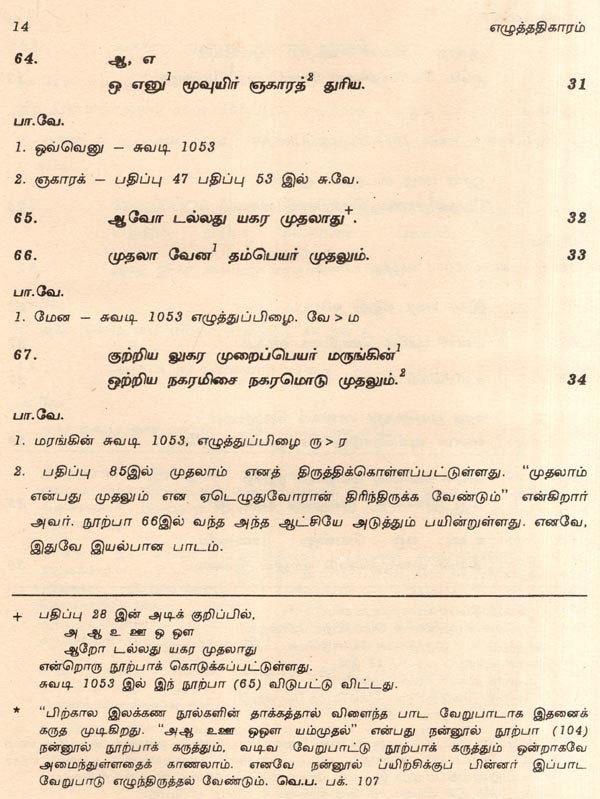 14 எழுத்ததிகாரம்
64. ஆ, எ
ஒ எனு¹ மூவுயிர் ஞகாரத்² துரிய. 31
பா.வே.
1. ஒவ்வெனு – சுவடி 1053
2. ஞகாரக் – பதிப்பு 47 பதிப்பு 53 இல் சு.வே.
65. ஆவோ டல்லது யகர முதலாது⁺. 32
66. முதலா வேன¹ தம்பெயர் முதலும். 33
பா.வே.
1. மேன – சுவடி 1053 எழுத்துப்பிழை. வே > ம
67. குற்றிய லுகர முறைப்பெயர் மருங்கின்¹
ஒற்றிய நகரமிசை நகரமொடு முதலும்.² 34
பா.வே.
1. மரங்கின் சுவடி 1053, எழுத்துப்பிழை ரு > ர
2. பதிப்பு 85இல் முதலாம் எனத் திருத்திக்கொள்ளப்பட்டுள்ளது. “முதலாம்
என்பது முதலும் என ஏடெழுதுவோரான் திரிந்திருக்க வேண்டும்” என்கிறார்
அவர். நூற்பா 66இல் வந்த அந்த ஆட்சியே அடுத்தும் பயின்றுள்ளது. எனவே,
இதுவே இயல்பான பாடம்.
+ பதிப்பு 28 இன் அடிக் குறிப்பில்,
அ ஆ உ ஊ ஓ ஔ
ஆறோ டல்லது யகர முதலாது
என்றொரு நூற்பாக் கொடுக்கப்பட்டுள்ளது.
சுவடி 1053 இல் இந் நூற்பா (65) விடுபட்டு விட்டது.
* “பிற்கால இலக்கண நூல்களின் தாக்கத்தால் விளைந்த பாட வேறுபாடாக இதனைக்
கருத முடிகிறது. “அஆ உஊ ஒஔ யம்முதல்” என்பது நன்னூல் நூற்பா (104)
நன்னூல் நூற்பாக் கருத்தும், வடிவ வேறுபாட்டு நூற்பாக் கருத்தும் ஒன்றாகவே
அமைந்துள்ளதைக் காணலாம். எனவே நன்னூல் ப்யிற்சிக்குப் பின்னர் இப்பாட
வேறுபாடு எழுந்திருத்தல் வேண்டும். வெ.ப. பக். 107